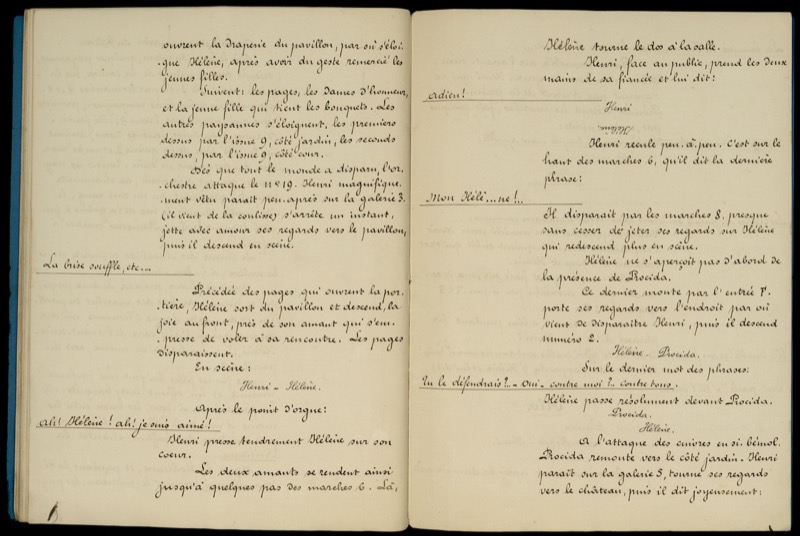 ouvrent la draperie du pavillon, par où s'éloi-
-gne Hélène, après avoir du geste remercié les
jeunes filles.
Suivent: les pages, les dames d'honneur,
et la jeune fille qui tient les bouquets. Les
autres paysannes s'éloignent, les premiers
dessus par l'issue 9, côté jardin, les seconds
dessus, par l'issue 9, côté cour.
Dès que tout le monde a disparu, l'or-
-chestre attaque le nº 19. Henri magnifique-
-ment vêtu paraît peu-après sur la galerie 3.
(il vient de la coulisse) s'arrête un instant,
jette avec amour ses regards vers le pavillon,
puis il descend en scène.
La brise souffle, etc...
Précédée des pages qui ouvrent la por-
-tière, Hélène sort du pavillon et descend, la
joie au front, près de son amant qui s'em-
-presse de voler à sa rencontre. Les pages
disparaissent.
En scène:
Henri - Hélène.
Après le point d'orgue:
Ah! Hélène! ah! je suis aimé!
Henri presse tendrement Hélène sur son
coeur.
Les deux amants se rendent ainsi
jusqu'à quelques pas des marches 6. Là,
Hélène tourne le dos à la salle.
Henri, face au public, prend les deux
mains de sa fiancée et lui dit:
adieu!
Henri
Hélène
Henri recule peu-à-peu. c'est sur le
haut des marches 6, qu'il dit la dernière
phrase:
Mon Hélè...ne!..
Il disparaît par les marches 8, presque
sans cesser de jeter ses regards sur Hélène
qui redescend plus en scène.
Hélène ne s'aperçoit pas d'abord de
la présence de Procida.
Ce dernier monte par l'entrée 7.
porte ses regards vers l'endroit par où
vient de disparaître Henri, puis il descend
numéro 2.
Hélène. Procida.
Sur le dernier mot des phrases:
Tu le défendrais?.. - Oui - contre moi?.. contre tous.
Hélène passe résolument devant Procida.
Procida.
Hélène.
A l'attaque des cuivres en si bémol.
Procida remonte vers le côté jardin. Henri
paraît sur la galerie 3, tourne ses regards
vers le château, puis il dit joyeusement: